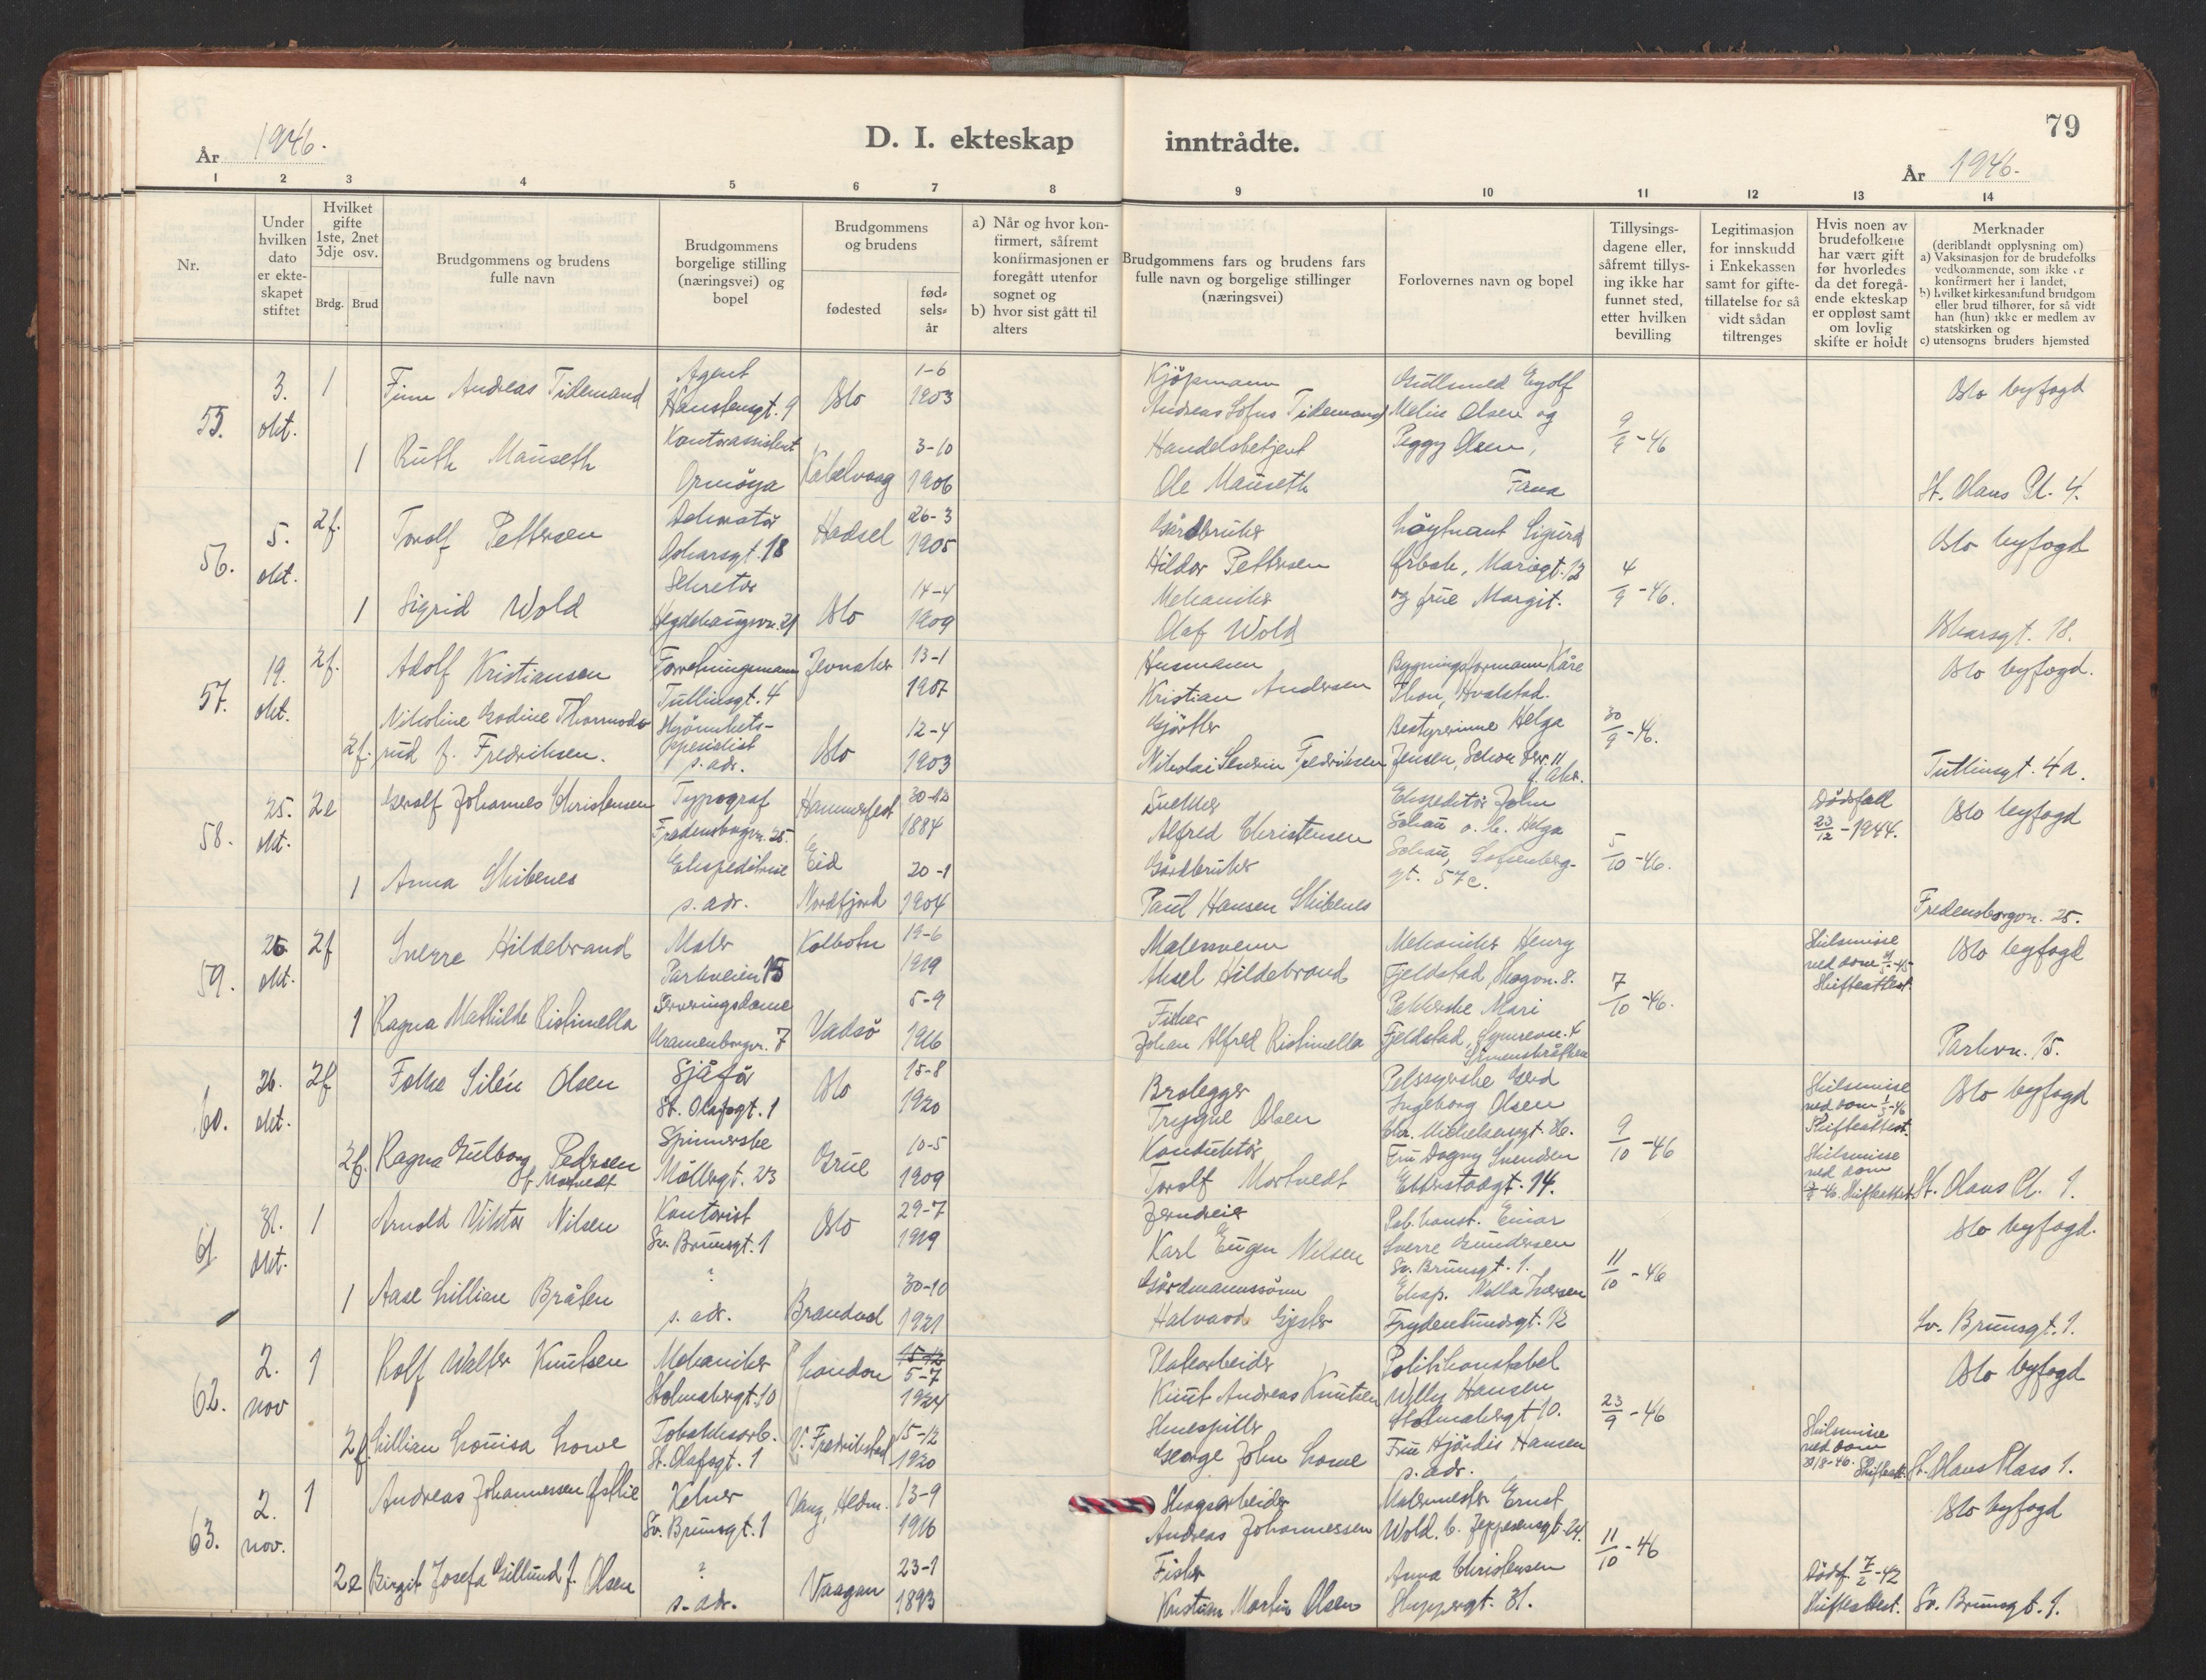 78
År 1946.
D. I. ekteskap
inntrådte.
79
År 1946.
1 2 3 4 5 6 7 8 9 10 11 12 13 14
Nr.
Under
hvilken
dato
er ekte-
skapet
stiftet
Hvilket
gifte
1ste, 2net
3dje osv.
Brdg. Brud
Brudgommens og brudens
fulle navn
Brudgommens
borgelige stilling
(næringsvei) og
bopel
Brudgommens
og brudens
fødested
fød-
sels-
år
a) Når og hvor kon-
firmert, såfremt
konfirmasjonen er
foregått utenfor
sognet og
b) hvor sist gått til
alters
Brudgommens fars og brudens fars
fulle navn og borgelige stillinger
(næringsvei)
Forlovernes navn og bopel
Tillysings-
dagene eller,
såfremt tillys-
ing ikke har
funnet sted,
etter hvilken
bevilling
Legitimasjon
for innskudd
i Enkekassen
samt for gifte-
tillatelse for så
vidt sådan
tiltrenges
Hvis noen av
brudefolkene
har vært gift
før hvorledes
da det foregå-
ende ekteskap
er oppløst samt
om lovlig
skifte er holdt
Merknader
(deriblandt opplysning om)
a) Vaksinasjon for de brudefolks
vedkommende, som ikke er
konfirmert her i landet,
b) hvilket kirkesamfund brudgom
eller brud tilhører, for så vidt
han (hun) ikke er medlem av
statskirken og
c) utensogns bruders hjemsted
55.
3.
okt.
1
Finn Andreas Tidemand
Agent
Hanstensgt. 9
Oslo
1-6
1903
Kjöpmann
Andreas Sofus Tidemand
Gullsmed Eyolf
Melin Olsen og
Peggy Olsen,
Fana
9/9-46
Oslo byfogd
1
Ruth Mauseth
Kontorassistent
Ormöya
Kabelvaag
3-10
1906
Handelsbetjent
Ole Mauseth
St. Olavs Pl. 4.
56.
5.
okt.
2f.
Torolf Pettersen
Dekoratör
Oskarsgt. 18
Hadsel
26-3
1905
Gårdbruker
Hildor Pettersen
Löytnant Sigurd
Örbek, Mariegt. 12
og frue Margit.
4/9-46.
Oslo byfogd
1
Sigrid Wold
Sekretær
Hegdehaugsvn. 21
Oslo
14-4
1909
Mekaniker
Olaf Wold
Oskarsgt. 18.
57.
19.
okt.
2f.
Adolf Kristiansen
Forretningsmann
Tullinsgt. 4
Jevnaker
13-1
1907
Husmann
Kristian Andersen
Bygningsformann Kåre
Thon, Hvalstad.
Bestyrerinne Helga
Jensen, Schous terr. 11
V. Aker.
30/9-46.
Oslo byfogd.
2f.
Nikoline Godine Thormods-
rud f. Fredriksen.
Skjønnhets-
spesialist
s. adr.
Oslo
12-4
1903
Gjörtler
Nikolai Severin Fredriksen
Tullinsgt. 4a.
58.
25.
okt.
2e
Gerolf Johannes Christensen
Typograf
Fredensborgvn. 25.
Hammerfest
30-12
1884
Snekker
Alfred Christensen
Ekspeditör John
Schau o. h. Helga
Schau, Sofienberg-
gt. 57c.
5/10-46.
Dødsfall
23/12-1944.
Oslo byfogd
1
Anna Skibenes
Ekspeditrise
s. adr.
Eid
Nordfjord
20-1
1904
Gårdbruker
Paul Hansen Skibenes
Fredensborgvn. 25.
59.
26
okt.
2f
Sverre Hildebrand
Maler
Parkveien 15
Kolbotn
19-6
1919
Malersvenn
Aksel Hildebrand
Mekaniker Henry
Fjeldstad, Skogvn. 8.
Pakkerske Mari
Fjeldstad,
7/10-46.
Skilsmisse
ved dom
Skifteattest.
Oslo byfogd
1
Ragna Mathilde Ristimella
Serveringsdame
Uranienborgvn. 7
Vadsö
5-9
1916
Fisker
Johan Alfred Ristimella
Parkvn. 15.
60.
26.
okt.
2f
Folke Silén Olsen
Sjåför
St. Olafsgt. 1
Oslo
15-8
1920
Brolegger
Trygve Olsen
Pelssyerske Gerd
Ingeborg Olsen
Chr. Michelsensgt. 36.
Fru Dagny Svendsen
Etterstadgt. 14.
9/10-46
Skilsmisse
ved dom
Skifteattest.
Oslo byfogd
2f.
Ragna Gulborg Pedersen
f. Mortvedt
Spinnerske
Möllergt. 23
Grue
10-5
1909
Konduktör
Torolf Mortvedt
Skilsmisse
ved dom
Skifteattest
St. Olavs Pl. 1.
61
31.
okt.
1
Arnold Viktor Nilsen
Kontorist
Sv. Brunsgt. 1
Oslo
29-7
1919
Jerndreier
Karl Eugen Nilsen
Pol. konst. Einar
Sverre Gundersen
Sv. Brunsgt. 1.
Eksp. Nella Iversen
Frydenlundsgt. 12
11/10-46
Oslo byfogd.
1
Aase Lillian Bråten
?
s. adr.
Brandval
30-10
1921
Gårdmannssönn
Halvard Gjester
Sv. Brunsgt. 1.
62.
2.
nov
1
Rolf Walter Knutsen
Mekaniker
Holmsbergt. 10
London
15-12
5-7
1924
Platearbeider
Knut Andreas Knutsen
Politikonstabel
Willy Hansen
Holmsbergt 10.
Fru Hjördis Hansen
s. adr.
23/9-46
Oslo byfogd
2f.
Lillian Louisa Lowe
Tobakksarb.
St. Olafsgt. 1
V. Fredrikstad
15-12
1920
Skuespiller
George John Lowe
Skilsmisse
ved dom
Skifteatt.
St. Olavs Plass 1.
63.
2.
nov.
1
Andreas Johannessen Østlie
Kelner
Sv. Brunsgt. 1
Vang, Hedm.
13-9
1916
Skogsarbeider
Andreas Johannessen
Malermester Ernst
Wold. C. Jeppesensgt. 24.
Anna Christensen
Skippergt. 31.
11/10-46
Oslo byfogd
2e
Birgit Josefa Gillund f. Olsen
?
s. adr.
Vaagan
23-1
1893
Fisker
Kristian Martin Olsen
Dødsf. 7/2-42
Skifteattest.
Sv. Brunsgt. 1.